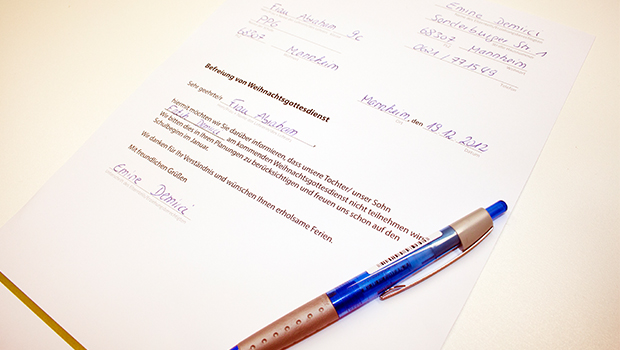 Emine Demirci
Sonderburger Str. 1
68307 Mannheim
0621 / 771549
Frau Abraham 9c
68307 Mannheim
Befreiung von Weihnachtsgottesdienst
Mannheim, den 18.12.2012
Sehr geehrte/r Frau Abraham,
hiermit möchten wir Sie darüber informieren, dass unsere Tochter/ unser Sohn
Demirci am kommenden Weihnachtsgottesdienst nicht teilnehmen wird.
Wir bitten dies in Ihren Planungen zu berücksichtigen und freuen uns schon auf den
Schulbeginn im Januar.
Wir danken für Ihr Verständnis und wünschen Ihnen erholsame Ferien.
Mit freundlichen Grüßen
Emine Demirci